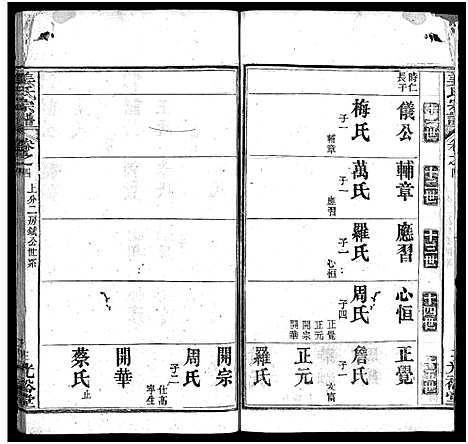 姜氏宗譜
卷之四
十三世
十四世
光裕堂
時仁長子
儀公
梅氏
子一
輔章
輔章
萬氏
子一
應習
應習
羅氏
子一
心恒
心恒
周氏
子四
正覺
正元
開宗
開華
正覺
詹氏
子一
正元
羅氏
開宗
周氏
子二
仕高
開華
蔡氏
止
姜氏宗譜
卷之四
上分二房鉞公世系
光裕堂